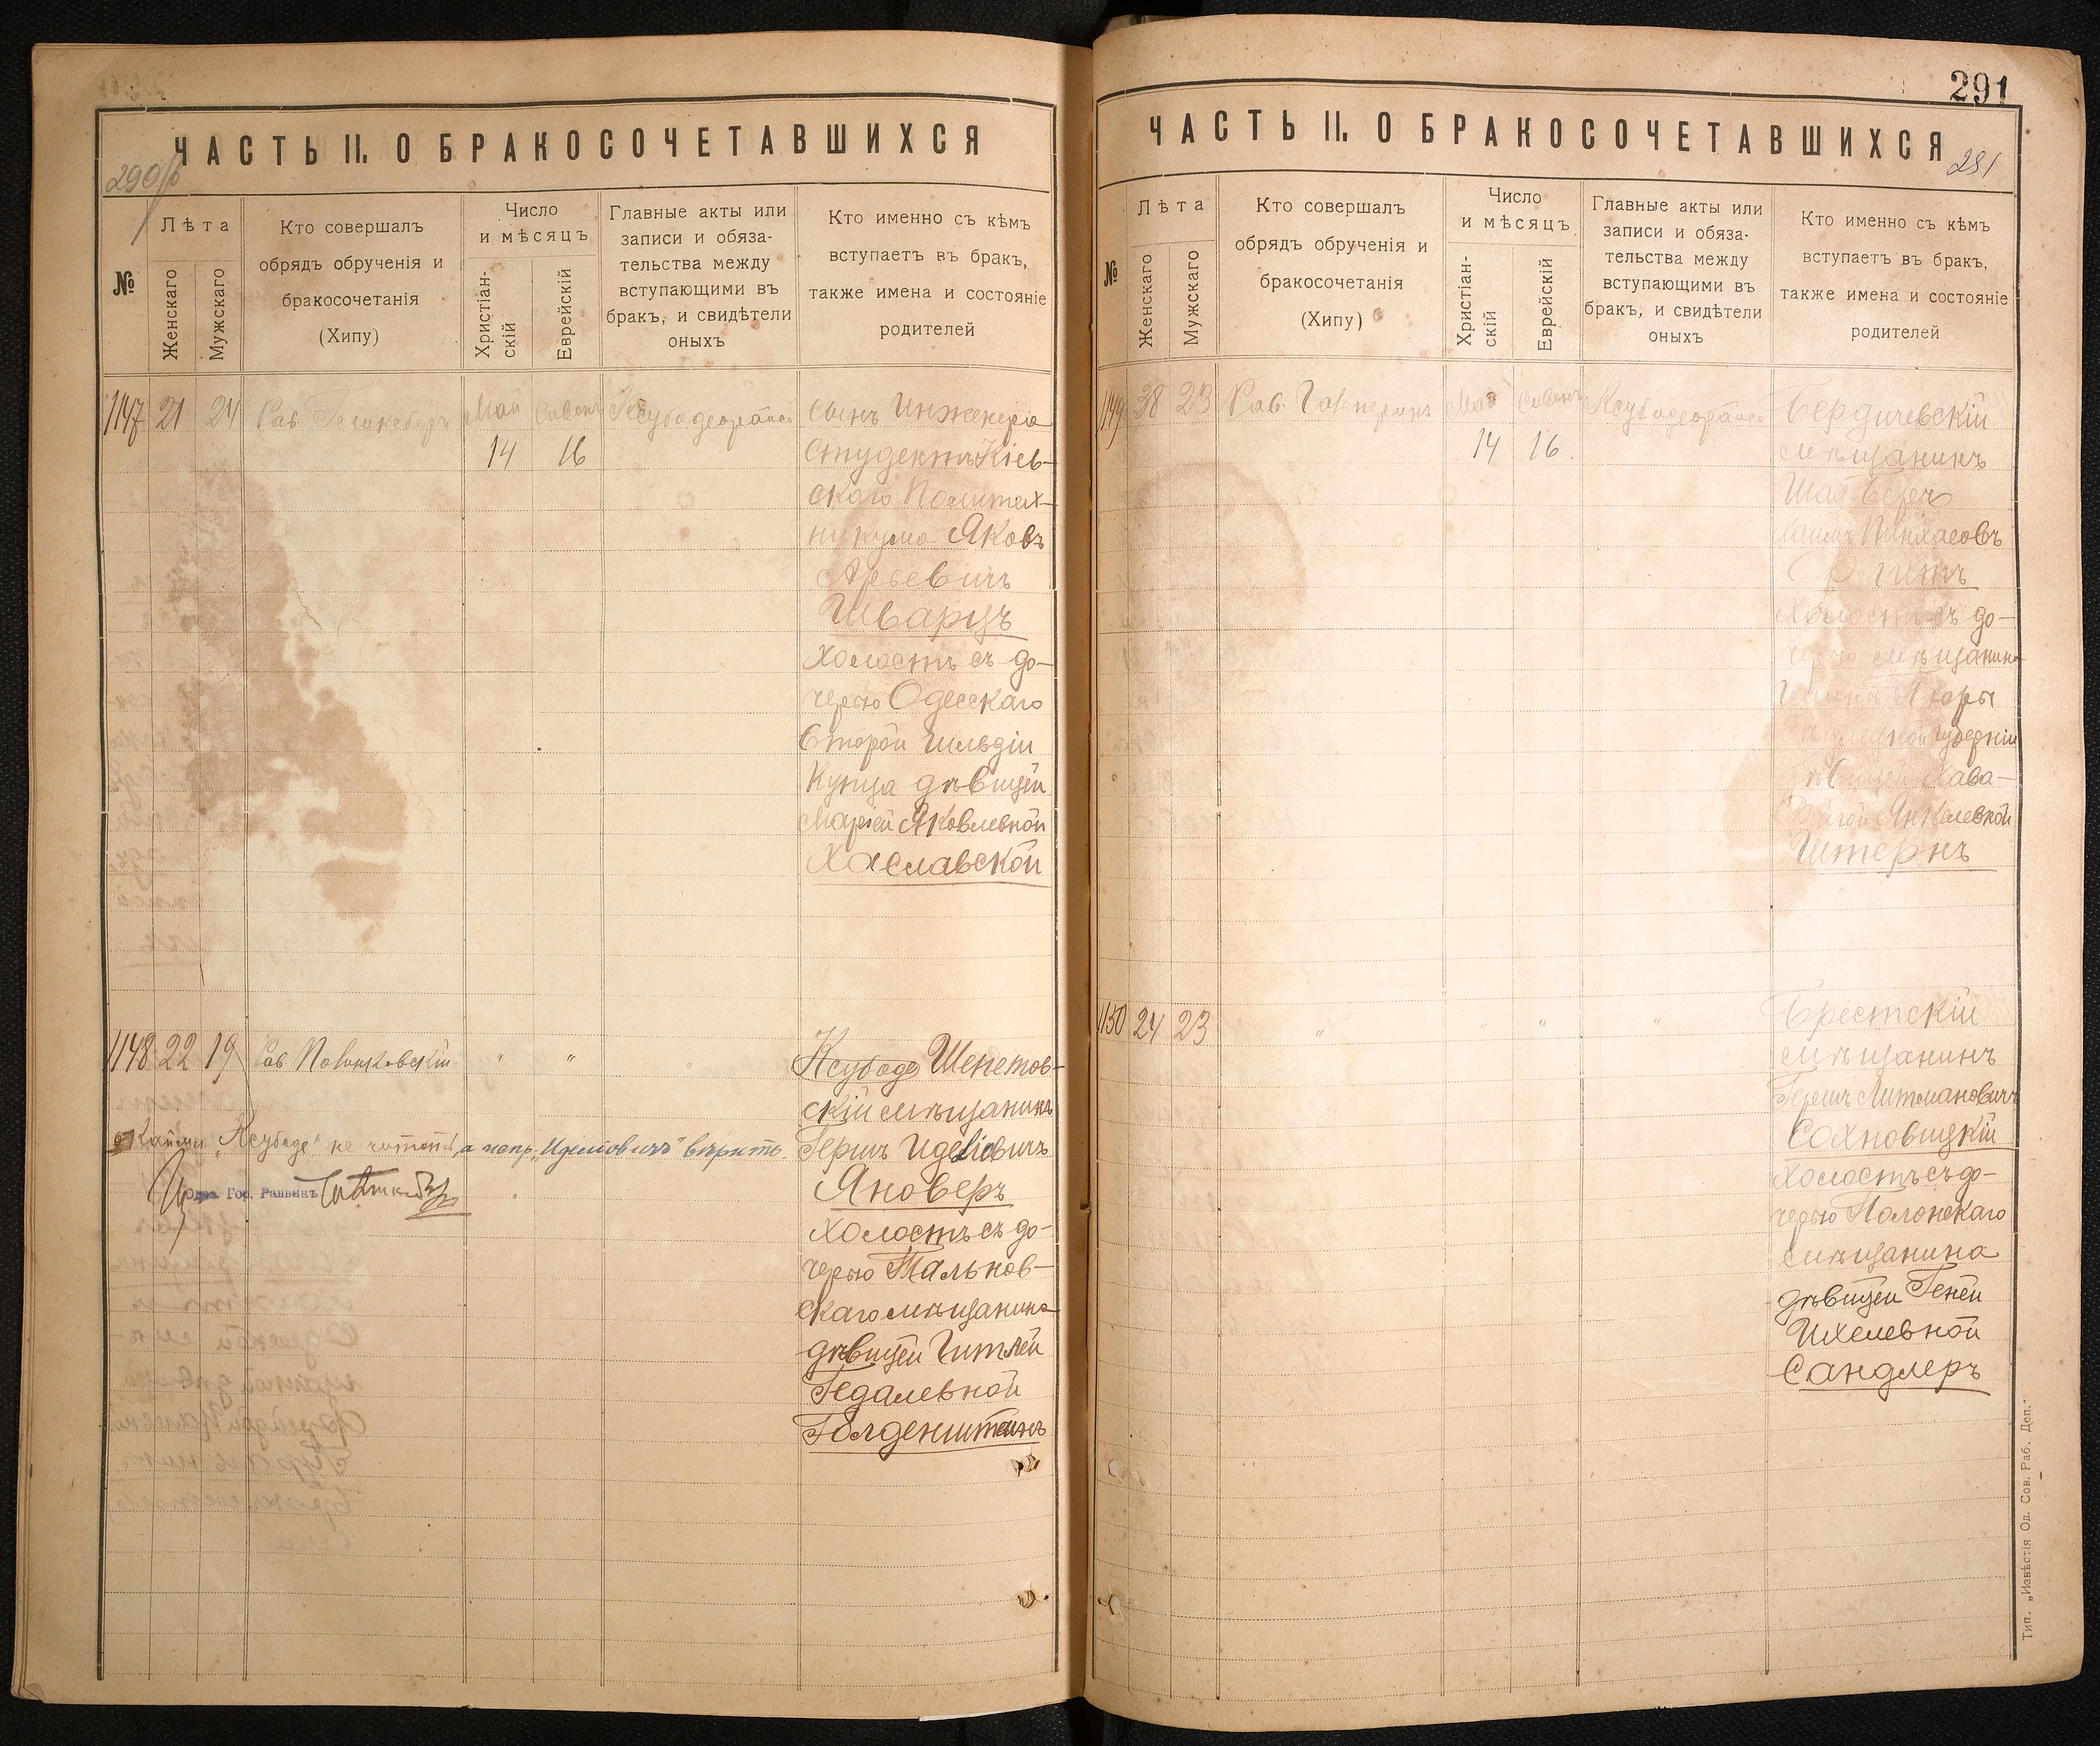 ЧАСТЬ II. О БРАКОСОЧЕТАВШИХСЯ
290
№
Лѣта
Женскаго
Мужскаго
Кто совершалъ
обрядъ обрученія и
бракосочетанія
(Хипу)
Число
и мѣсяцъ
Христіан-
скій
Еврейскій
Главные акты или
записи и обяза-
тельства между
вступающими въ
бракъ, и свидѣтели
оныхъ
Кто именно съ кѣмъ
вступаетъ въ бракъ,
также имена и состояніе
родителей
1147 21 24 Рав. Май Сивонъ
14 16
сынъ Инженера
Студентъ Кіев-
скаго Политех-
никума Яковъ
Арьевичъ
Шварцъ
холостъ съ до-
черью Одесскаго
Второй Гильдіи
Купца дѣвицей
Маріей Яковлевной
Хаславской
1148 22 19 Рав. " " "
Ксубоде Шепетов-
скій мѣщанинъ
Гершъ Иделіовичъ
Яноверъ
холостъ съ до-
черью Тальнов-
скаго мѣщанина
дѣвицей Гитлей
Гедалевной
Голденштейнъ
"Ксубоде" не читать, а вѣрить.
Одес. Гор. Раввинъ
291
ЧАСТЬ II. О БРАКОСОЧЕТАВШИХСЯ
291
№
Лѣта
Женскаго
Мужскаго
Кто совершалъ
обрядъ обрученія и
бракосочетанія
(Хипу)
Число
и мѣсяцъ
Христіан-
скій
Еврейскій
Главные акты или
записи и обяза-
тельства между
вступающими въ
бракъ, и свидѣтели
оныхъ
Кто именно съ кѣмъ
вступаетъ въ бракъ,
также имена и состояніе
родителей
1149 38 23 Рав. Гальперинъ Май Сивонъ
14 16.
Бердичевскій
мѣщанинъ
Шая Беръ
Хаимъ Пинхасовъ
холостъ съ до-
черью мѣщанина
губерніи
дѣвицей Хава-
Янкелевной
Штернъ
1150 24 23 " " " "
Брестскій
мѣщанинъ
Гершъ Литмановичъ
Сахновицкій
холостъ съ до-
черью Полонскаго
мѣщанина
дѣвицей Геней
Ихелевной
Сандлеръ
Тип. „Извѣстія Од. Сов. Раб. Деп."